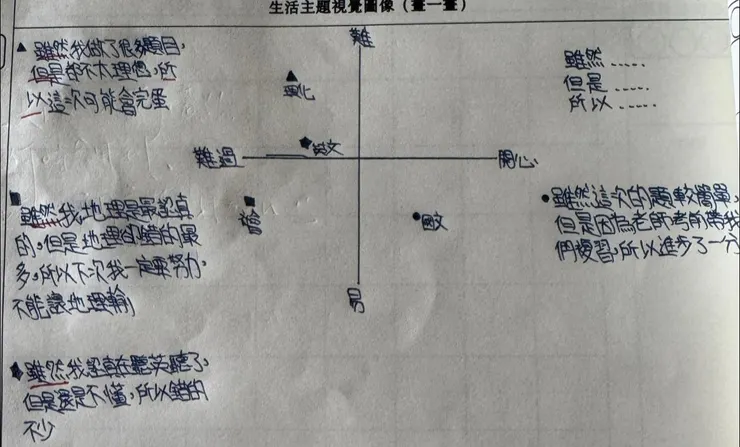 生活主題視覺圖像(畫一畫)
難
▲雖然我做了很多題目,
但是都不太理想,所
以這次可能會完蛋
▲
理化
雖然.....
但是.....
所以.....
難過
英文
開心
■雖然我地理是最認真
的,但是地理卻錯的最
多,所以下次我一定要努力,
不能讓地理輸
■
社會
●國文
●雖然這次的題較簡單,
但是因為老師考前帶我
們複習,所以進步了一分
易
雖然我認真在聽英聽了,
但是還是不懂,所以錯的
不少